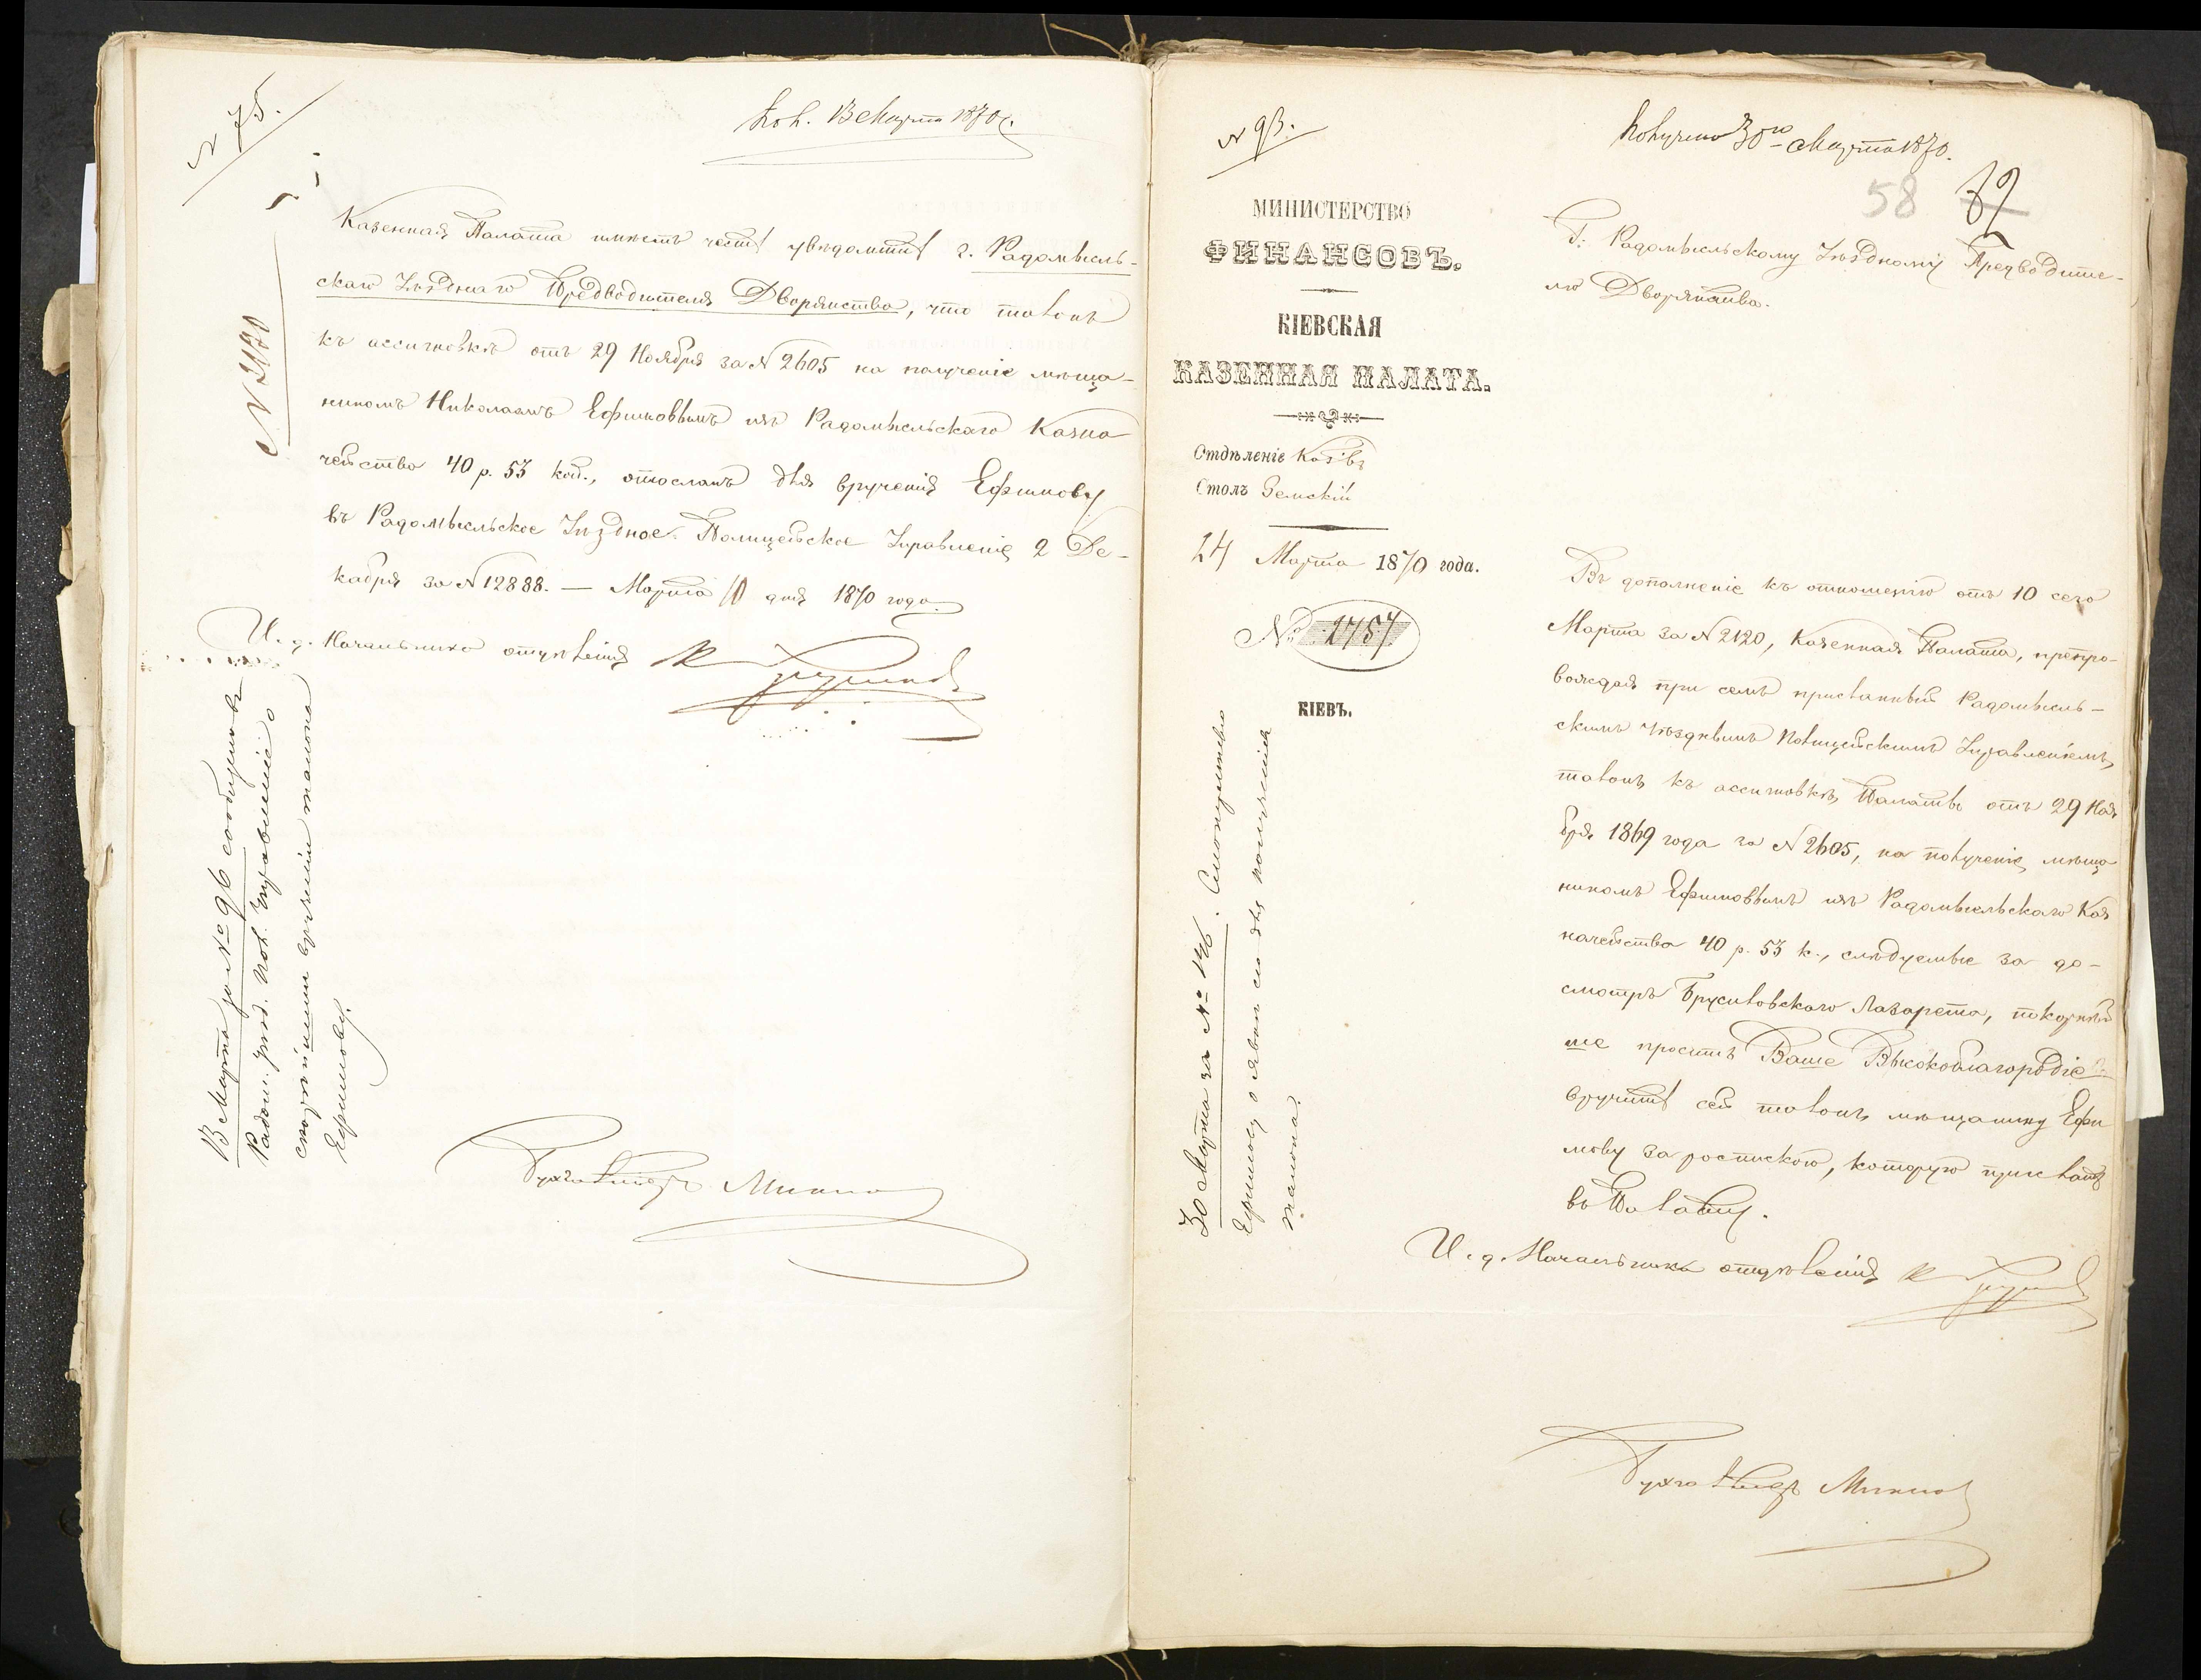 N 75.
Пол. 13 Марта 1870 г.
N 2120
Казенная Палата имѣетъ честь увѣдомить г. Радомысль-
скаго Уѣзднаго Предводителя Дворянства, что талонъ
къ ассигновкѣ отъ 29 Ноября за N 2605 на полученіе мѣща-
ниномъ Николаемъ Ефимовымъ изъ Радомысльскаго Казна
чейства 40 р. 53 коп., отосланъ для врученія Ефимову
въ Радомысльское Уѣздное Полицейское Управленіе 2 Де-
кабря за N 12888. — Марта 10 дня 1870 года.
И. д. Начальника отдѣленія
Бухгалтеръ
13 Марта за № 96 сообщено въ
Радом. уѣзд. пол. Управленіе о
скорѣйшемъ врученіи талона
Ефимову.
N 93.
Получено 30го Марта 1870.
58
МИНИСТЕРСТВО
ФИНАНСОВЪ.
КІЕВСКАЯ
КАЗЕННАЯ ПАЛАТА.
Отдѣленіе Каз-въ
Столъ Земскій
24 Марта 1870 года.
№ 2757
КІЕВЪ.
Г. Радомысльскому Уѣздному Предводите-
лю Дворянства.
Въ дополненіе къ отношенію отъ 10 сего
Марта за N 2120, Казенная Палата, препро-
вождая при семъ присланный Радомысль-
скимъ Уѣзднымъ Полицейскимъ Управленіемъ,
талонъ къ ассигновкѣ Палаты отъ 29 Ноя
бря 1869 года за N 2605, на полученіе мѣща
ниномъ Ефимовымъ изъ Радомысльскаго Каз
начейства 40 р. 53 к., слѣдуемые за до-
смотръ Брусиловскаго Лазарета, покорнѣй
ше проситъ Ваше Высокоблагородіе
вручить сей талонъ мѣщанину Ефи
мову за роспискою, которую прислать
въ Палату.
И. д. Начальника отдѣленія
Бухгалтеръ
30 Марта за № 146.
Ефимову о явкѣ для полученія
талона.